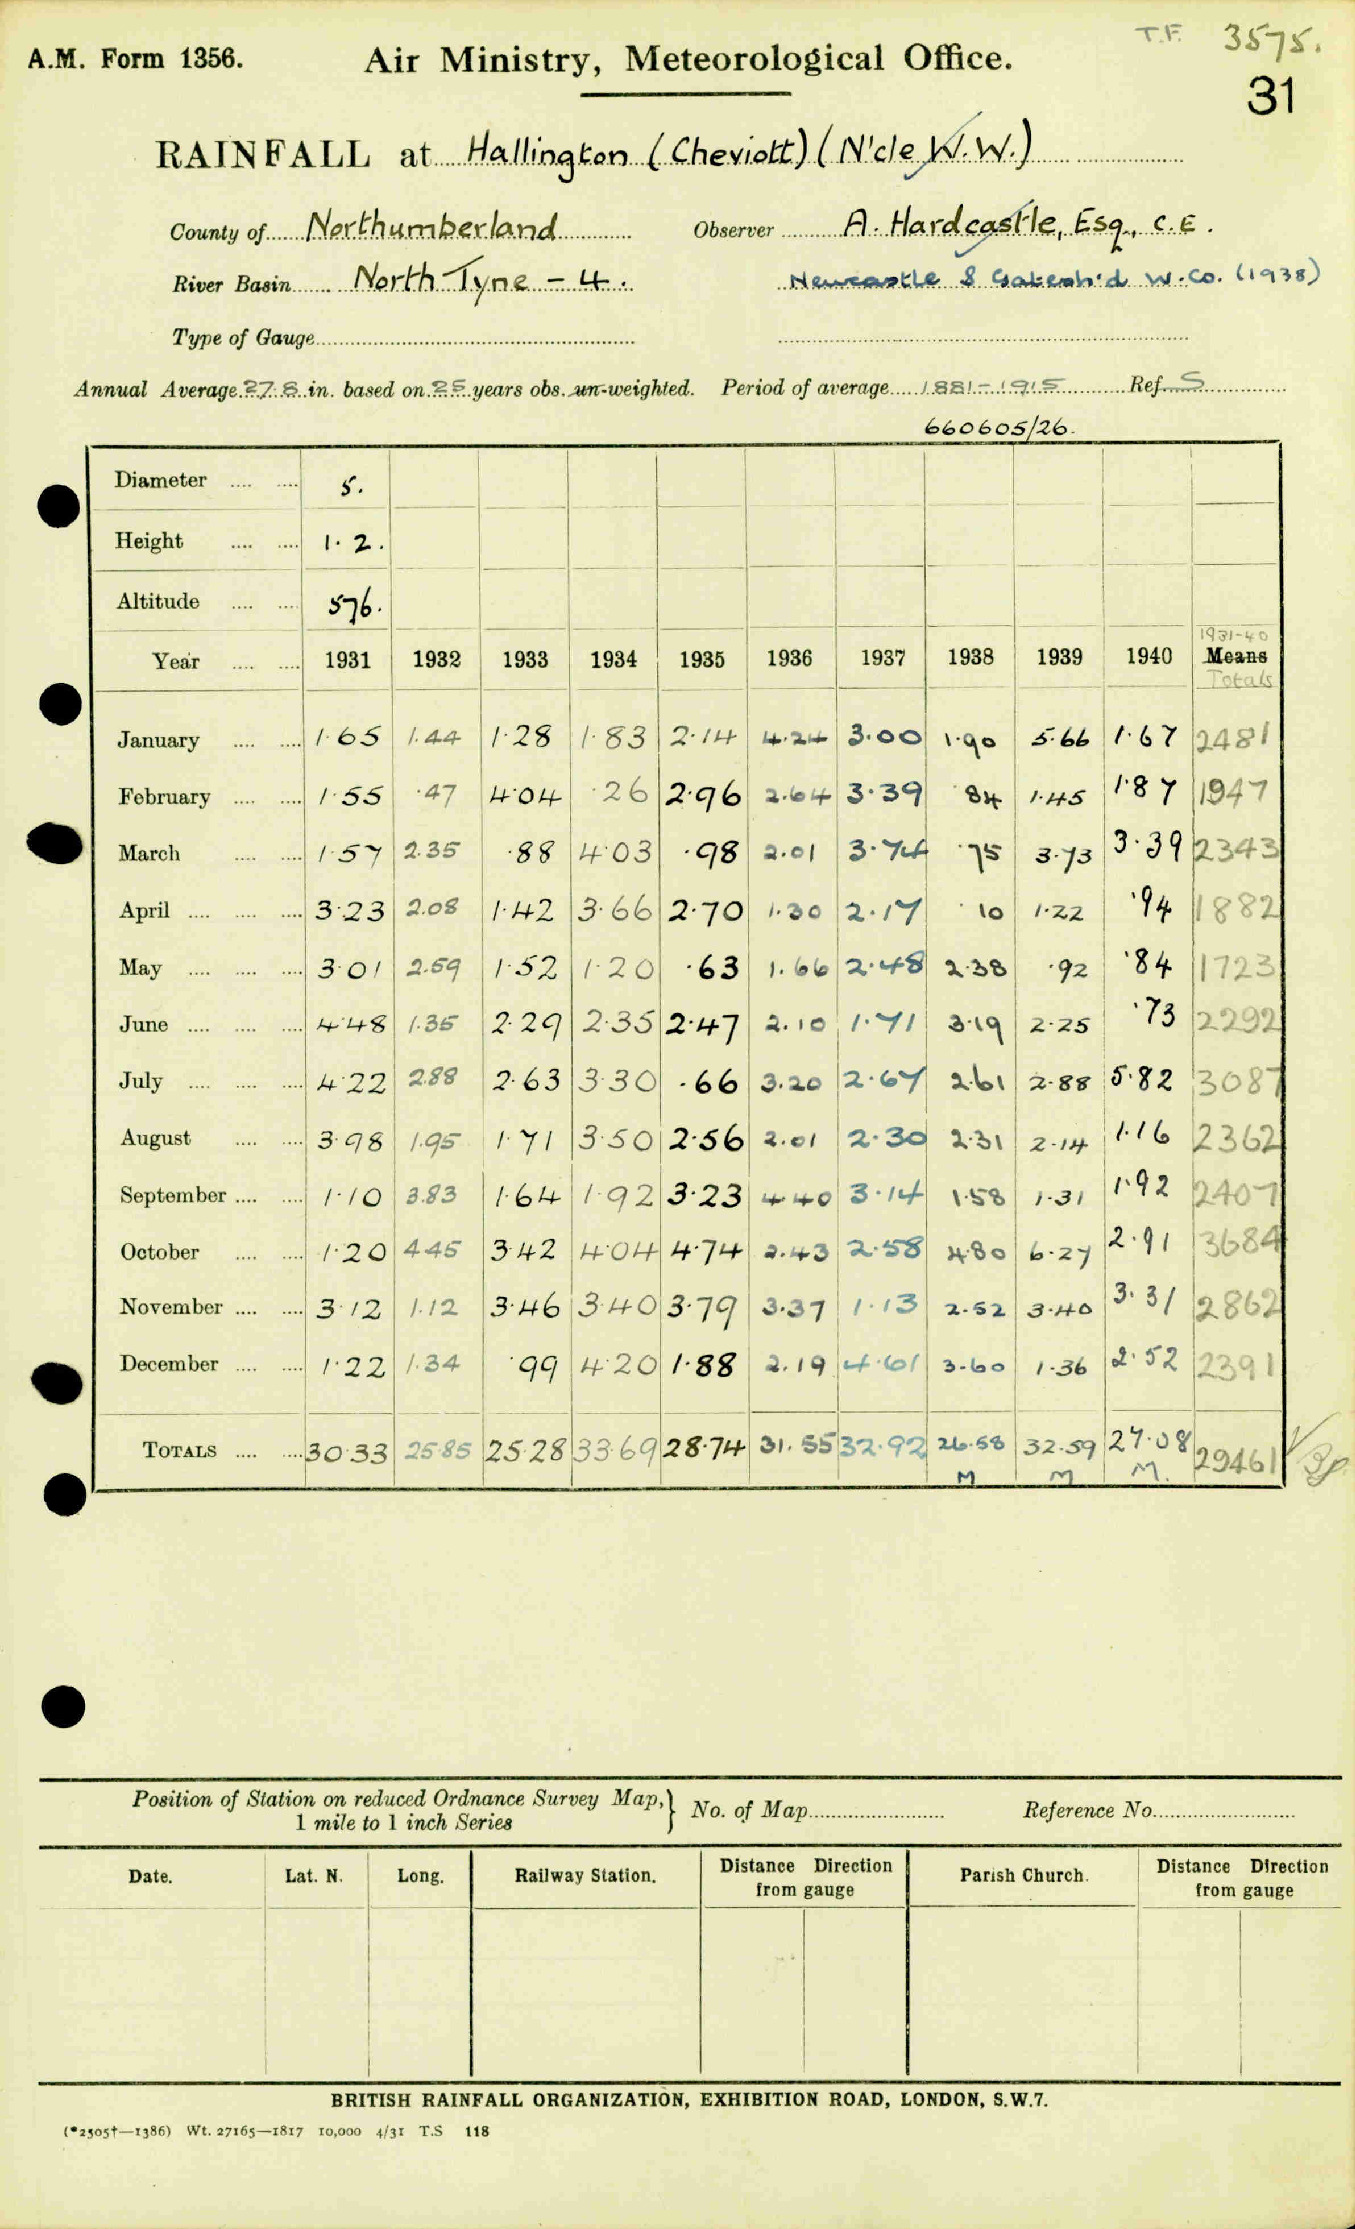 T.F. 3575.
A.M. Form 1356. Air Ministry, Meteorological Office.
31
RAINFALL at Hallington (Cheviott) (N'cle W.W.)
County of Northumberland Observer A. Hardcastle, Esq., C.E.
River Basin North Tyne - 4. Newcastle & Gatesh'd W.Co. (1938)
Type of Gauge
Annual Average 27.8 in. based on 25 years obs. un-weighted. Period of average 1881-1915 Ref. S
660605/26.
Diameter 5.
Height 1.2.
Altitude 576.
1931-40
Year 1931 1932 1933 1934 1935 1936 1937 1938 1939 1940 Means
Totals
January 1.65 1.44 1.28 1.83 2.14 4.24 3.00 1.90 5.66 1.67 2481
February 1.55 .47 4.04 .26 2.96 2.64 3.39 .84 1.45 1.87 1947
March 1.57 2.35 .88 4.03 .98 2.01 3.74 .75 3.73 3.39 2343
April 3.23 2.08 1.42 3.66 2.70 1.30 2.17 .10 1.22 .94 1882
May 3.01 2.59 1.52 1.20 .63 1.66 2.48 2.38 .92 .84 1723
June 4.48 1.35 2.29 2.35 2.47 2.10 1.71 3.19 2.25 .73 2292
July 4.22 2.88 2.63 3.30 .66 3.20 2.67 2.61 2.88 5.82 3087
August 3.98 1.95 1.71 3.50 2.56 2.01 2.30 2.31 2.14 1.16 2362
September 1.10 3.83 1.64 1.92 3.23 4.40 3.14 1.58 1.31 1.92 2407
October 1.20 4.45 3.42 4.04 4.74 2.43 2.58 4.80 6.27 2.91 3684
November 3.12 1.12 3.46 3.40 3.79 3.37 1.13 2.52 3.40 3.31 2862
December 1.22 1.34 .99 4.20 1.88 2.19 4.61 3.60 1.36 2.52 2391
TOTALS 30.33 25.85 25.28 33.69 28.74 31.55 32.92 26.58 32.59 27.08 29461
M M M.
Position of Station on reduced Ordnance Survey Map,} No. of Map Reference No.
1 mile to 1 inch Series
Date. Lat. N. Long. Railway Station. Distance Direction from gauge Parish Church. Distance Direction from gauge
BRITISH RAINFALL ORGANIZATION, EXHIBITION ROAD, LONDON, S.W.7.
(*2505†—1386) Wt. 27165—1817 10,000 4/31 T.S 118